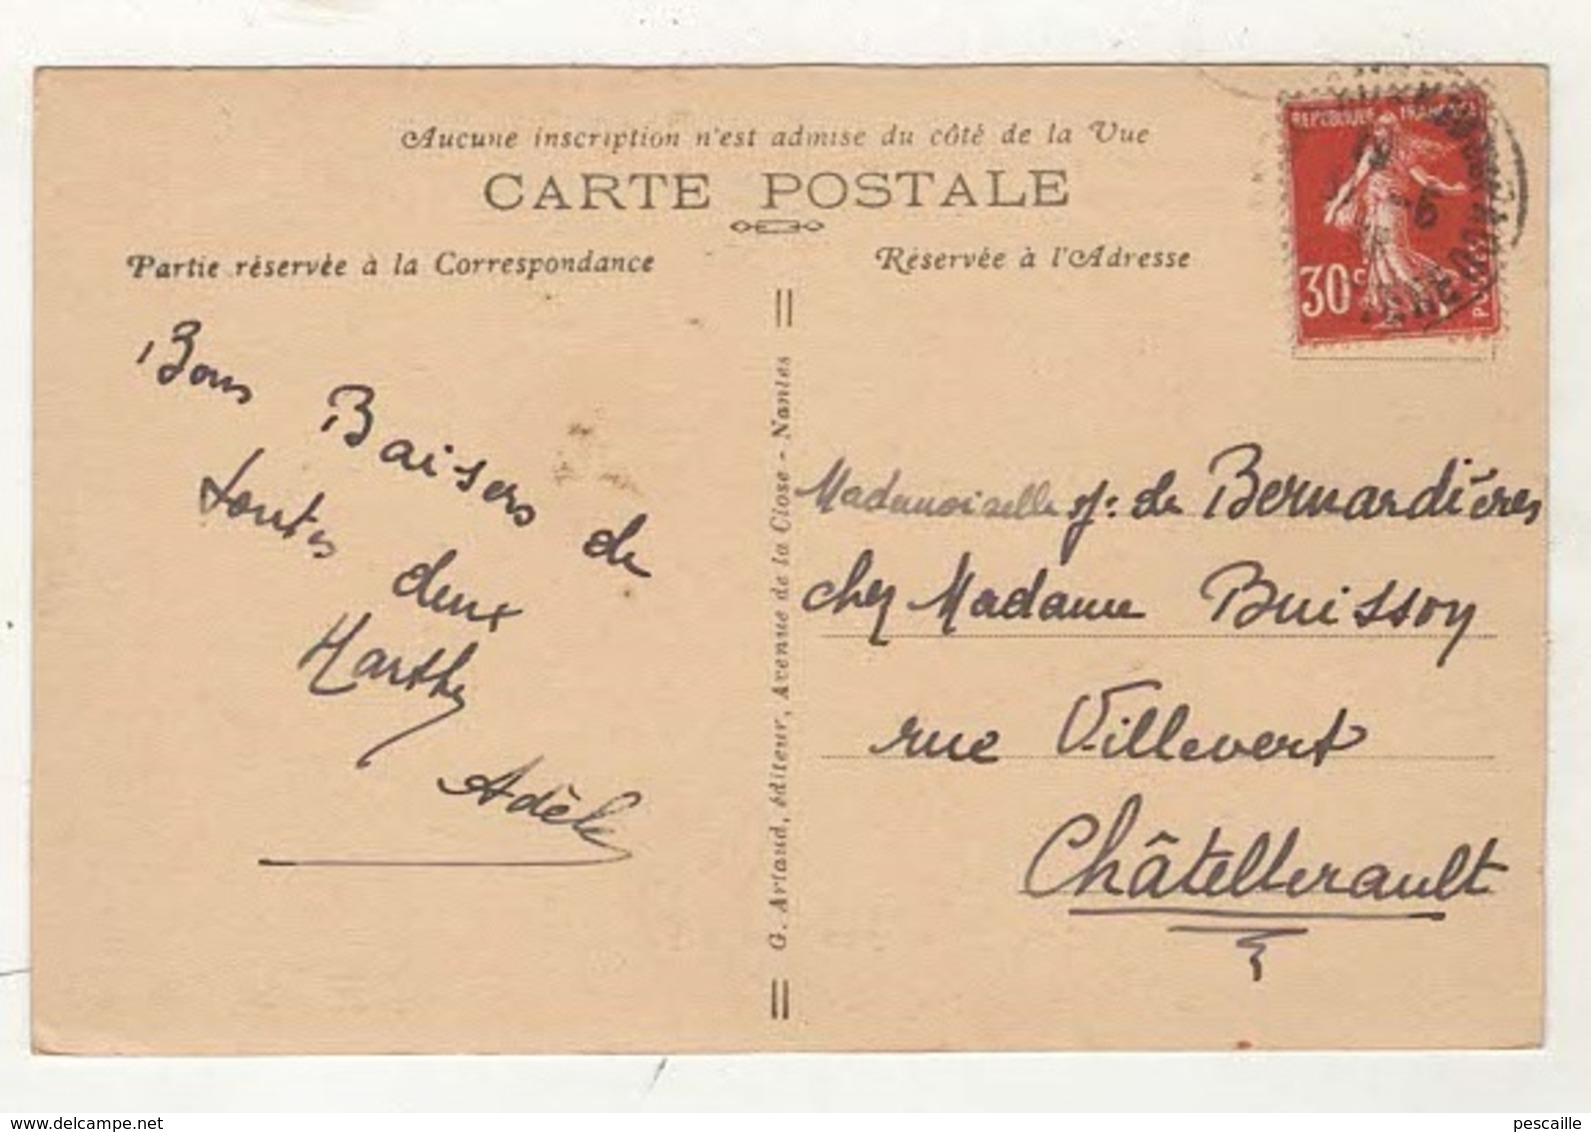 Aucune inscription n'est admise du côté de la Vue
CARTE POSTALE
Partie réservée à la Correspondance
Réservée à l'Adresse
REPUBLIQUE FRANÇAISE
30 c
Bons Baisers de
toutes deux
Marthe
Adèle
G. Artaud, éditeur, Avenue de la Close - Nantes
Mademoiselle de Bernardières
chez Madame Buisson
rue Villevert
Châtellerault
www.delcampe.net
pescaille